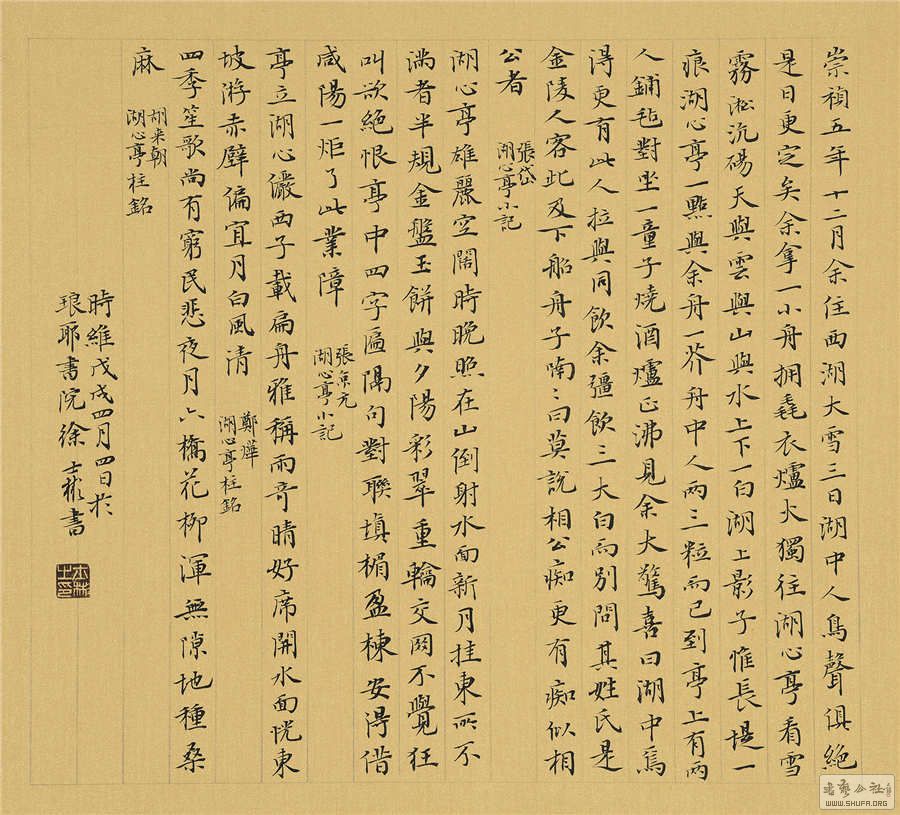 崇禎五年十二月余住西湖大雪三日湖中人鳥聲俱絕
是日更定矣余拏一小舟拥毳衣爐火獨往湖心亭看雪
霧淞沆碭天與雲與山與水上下一白湖上影子惟長堤一
痕湖心亭一點與余舟一芥舟中人兩三粒而已到亭上有兩
人鋪毡對坐一童子燒酒爐正沸見余大驚喜曰湖中焉
得更有此人拉與同飲余彊飲三大白而別問其姓氏是
金陵人客此及下船舟子喃〻曰莫說相公痴更有痴似相
公者
張岱
湖心亭小記
湖心亭雄麗空闊時晚照在山倒射水面新月挂東所不
满者半規金盤玉餅與夕陽彩翠重輪交网不覺狂
叫欲絕恨亭中四字匾隔句對聯填楣盈棟安得借
咸陽一炬了此業障
張京元
湖心亭小記
亭立湖心儼西子載扁舟雅稱雨奇晴好席開水面恍東
坡游赤壁偏宜月白風清
鄭燁
湖心亭柱銘
四季笙歌尚有窮民悲夜月六橋花柳渾無隙地種桑
麻
胡來朝
湖心亭柱銘
時維戊戌四月四日於
琅耶書院徐士彬書
書藝公社
WWW.SHUFA.ORG